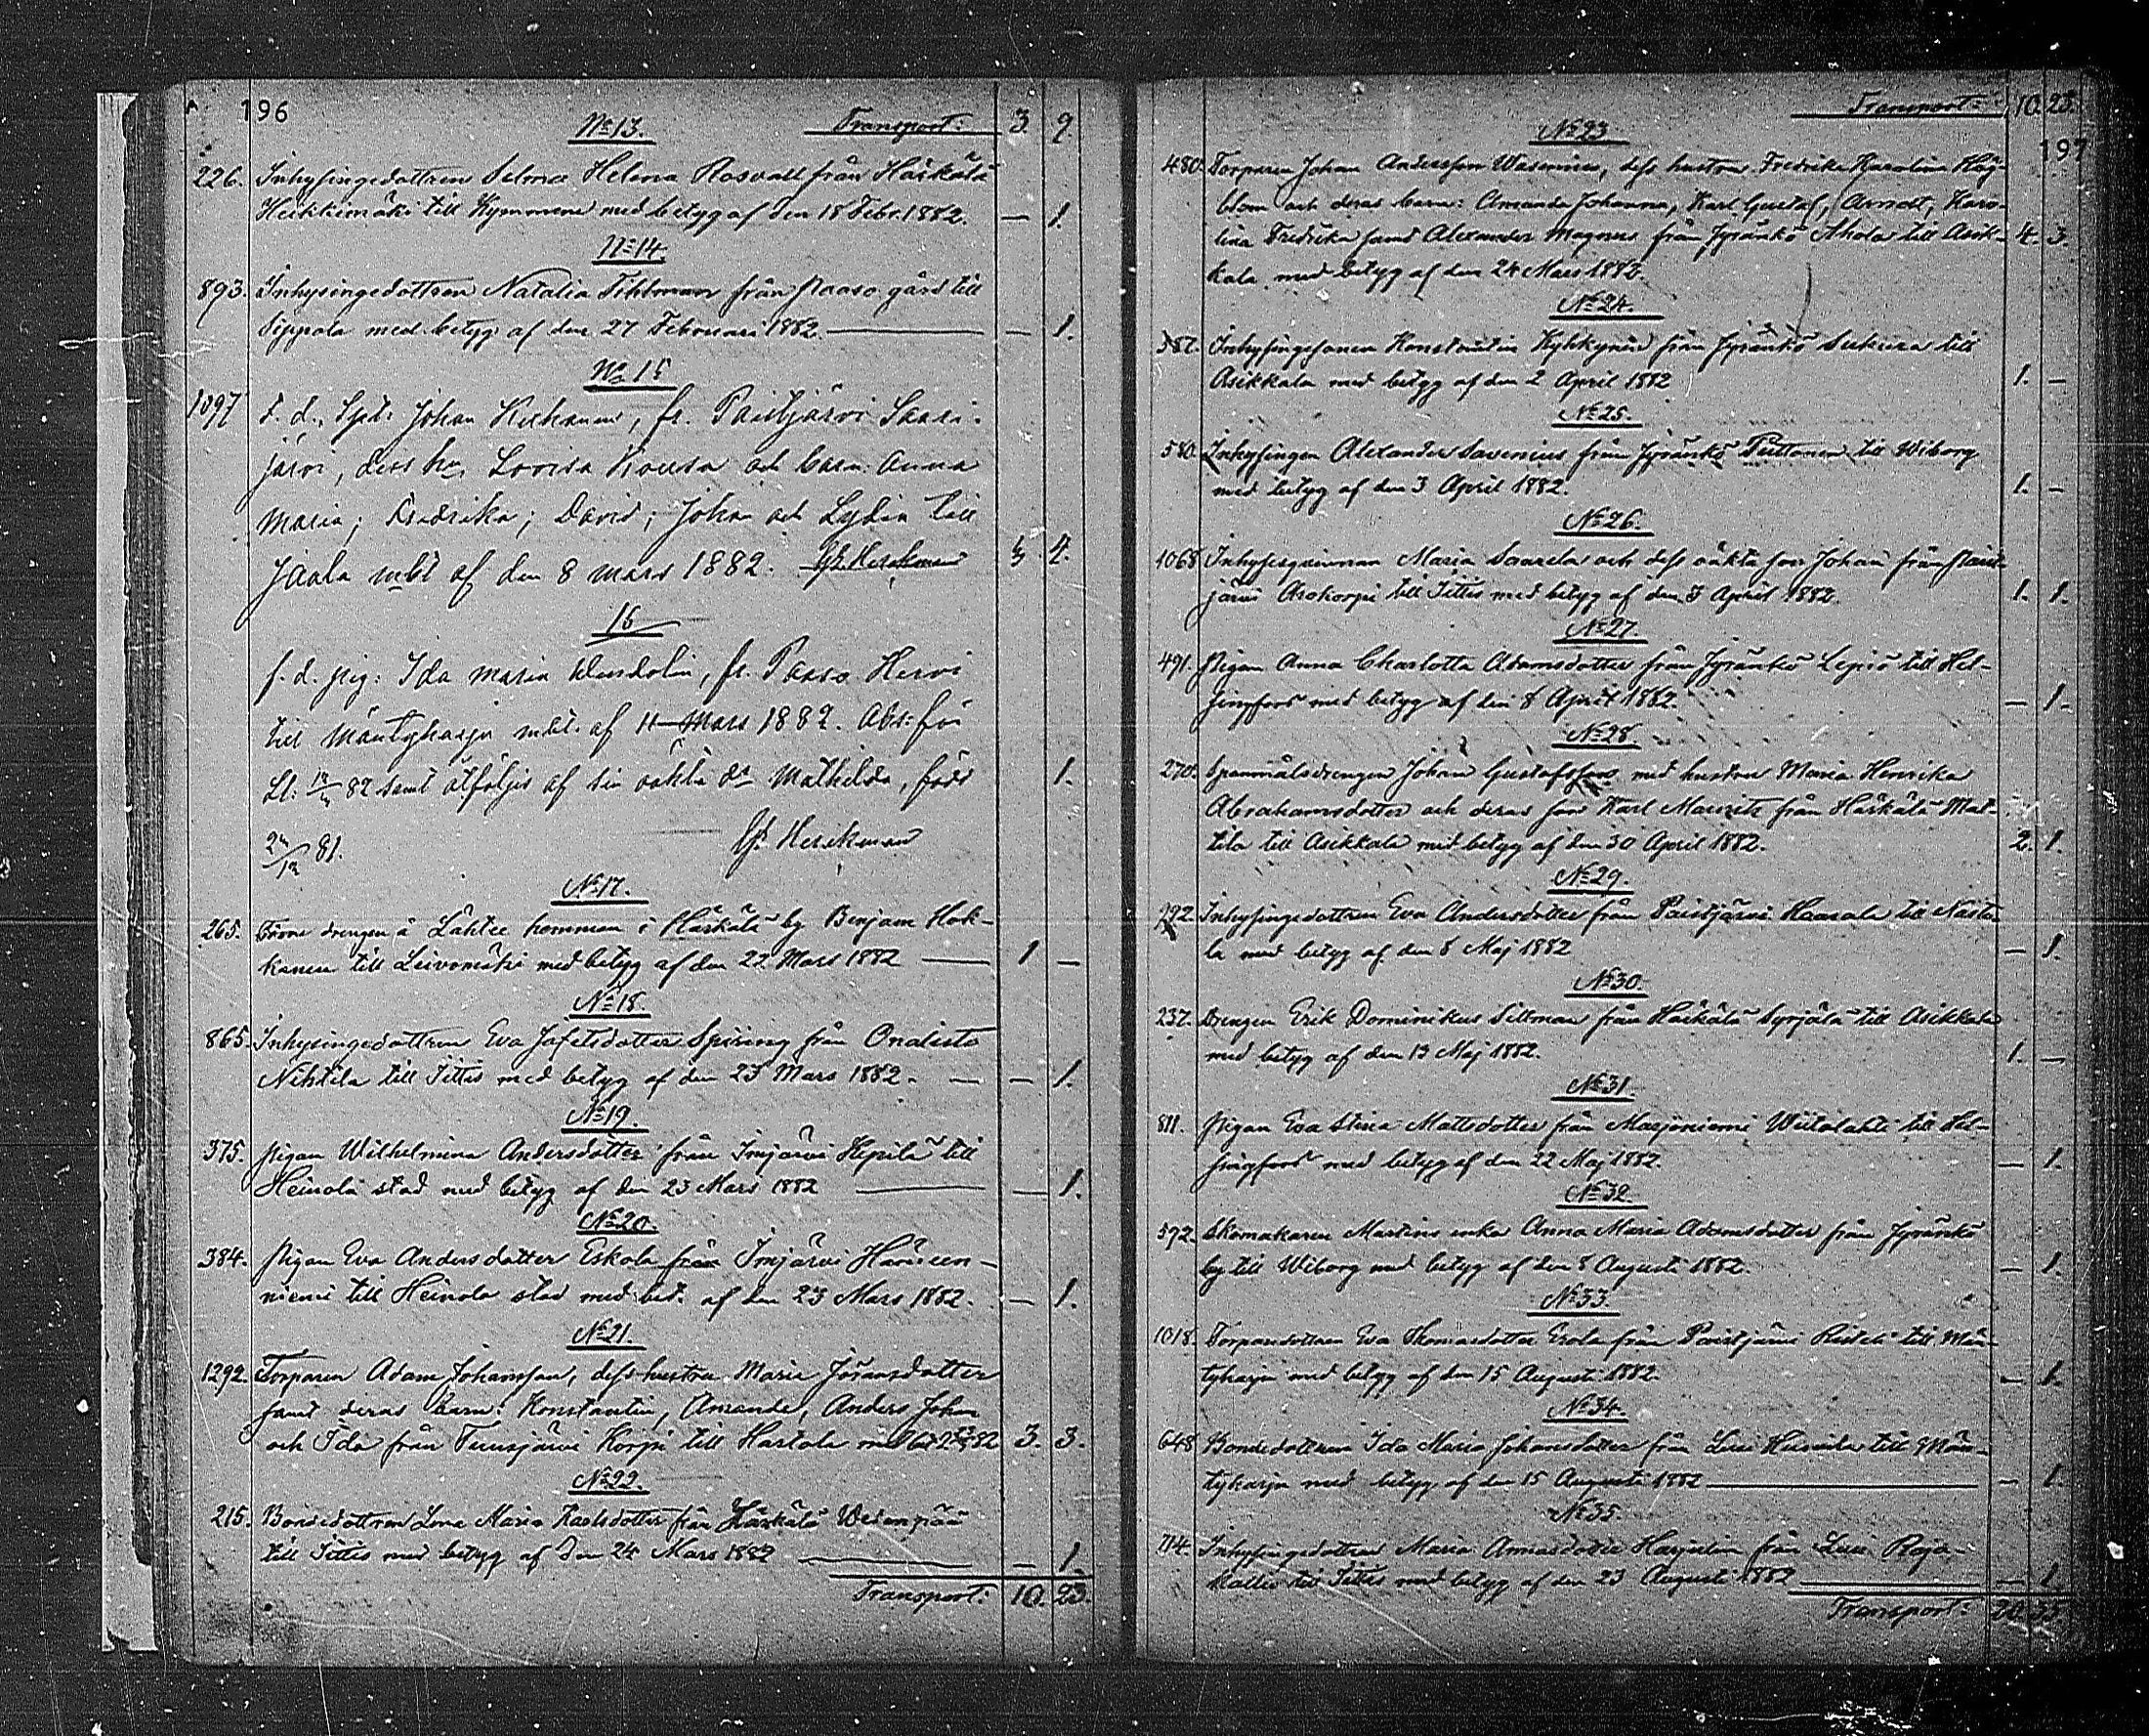 196
No 13. Transport: 3. 9.
226. Inhysingedottren Selma Helena Rosvall från Härkälä
Heikkimäki till Kymmene med betyg af den 18 Febr. 1882. — 1.
No 14.
893. Inhysingedottren Natalia Tihlman från Paaso gård till
Sippola med betyg af den 27 Februari 1882. — 1.
No 15
1097 F. d. Johan fr. Paistjärvi Saari-
järvi, dess hu Lovisa och barn: Anna
Maria; Fredrika; David; Johan och Lydia till
Jaala mbt af den 8 mars 1882. 3. 4.
16
f. d. pig: Ida Maria Wendolin, fr. Paaso Hervi
till Mäntyharju mbt. af 11 Mars 1882. Abs: för
82 samt åtföljes af sin oäkta dr Mathilda, född 1.
24/12 81.
No 17.
265. drengen å Lähtee hemman i Härkälä by Benjam Hok-
kanen till Leivonmäki med betyg af den 22 Mars 1882 — 1 —
No 18.
865. Inhysingedottren Eva Jafetsdotter Spiring från Onalisto
Nihtilä till Jittis med betyg af den 23 Mars 1882. — — 1.
No 19.
375. Pigan Wilhelmina Andersdotter från Imjärvi Hepilä till
Heinola stad med betyg af den 23 Mars 1882 — — 1.
No 20.
384. Pigan Eva Andersdotter Eskola från Imjärvi
niemi till Heinola stad med bet. af den 23 Mars 1882. — 1.
No 21.
1292. Torparen Adam Johansson, dess hustru Maria Göransdotter
samt deras barn: Konstantin, Amanda, Anders Johan
och Ida från Tuusjärvi Korpi till Hartola med bet 82 3. 3.
No 22.
215. Bondedottren Lena Maria Karlsdotter från Härkälä Wedenpää
till Jittis med betyg af den 24 Mars 1882 — — 1.
Transport: 10. 23.
Transport: 10. 23.
197
No 23.
480. Torparen Johan Andersson Wasenius, dess hustru Fredrika Karolina Häg-
blom och deras barn: Amanda Johanna, Karl Gustaf, Arndt, Karo-
lina Fredrika samt Alexander Magnus från Jyränkö Ahola till Asik- 4. 3.
kala med betyg af den 24 Mars 1882.
No 24.
587. Inhysingesonen Konstantin Kyhkynen från Jyränkö till
Asikkala med betyg af den 2 April 1882 1. —
No 25.
580. Inhysingen Alexander Savenius från Jyränkö Puttonen till Wiborg
med betyg af den 3 April 1882. 1. —
No 26.
1068 Inhysesqvinnan Maria Saarela och dess oäkta son Johan från Paist-
järvi Asokorpi till Jittis med betyg af den 3 April 1882. 1. 1.
No 27.
491. Pigan Anna Charlotta Adamsdotter från Jyränkö Lepiö till Hel-
singfors med betyg af den 8 April 1882. — 1.
No 28.
270. Spanmålsdrengen Johan Gustafsson med hustru Maria Henrika
Abrahamsdotter och deras son Karl Mauritz från Härkälä Mat-
tila till Asikkala med betyg af den 30 April 1882. 2. 1.
No 29.
992. Inhysingedottren Eva Andersdotter från Paistjärvi Haasala till Nasto-
la med betyg af den 8 Maj 1882 — 1.
No 30.
237. Drengen Erik Dominikus Siltman från Härkälä Syrjälä till Asikkala
med betyg af den 13 Maj 1882. 1. —
No 31.
811. Pigan Eva Stina Mattsdotter från Marjoniemi Wiitalahti till Hel-
singfors med betyg af den 22 Maj 1882. — 1.
No 32.
592. Skomakaren Martins enka Anna Maria Adamsdotter från Jyränkö
by till Wiborg med betyg af den 8 Augusti 1882. — 1.
No 33.
1018. Torparedottren Eva Thomasdotter Erola från Paistjärvi till Män-
tyharju med betyg af den 15 Augusti 1882. — 1.
No 34.
648 Bondedottren Ida Maria Johansdotter från Lusi till Män-
tyharju med betyg af den 15 Augusti 1882 — — 1.
No 35.
714. Inhysingedottren Maria Annasdotter Harjulin från Lusi Raja-
kallio till Jittis med betyg af den 23 Augusti 1882 — — 1
Transport: 20. 33.